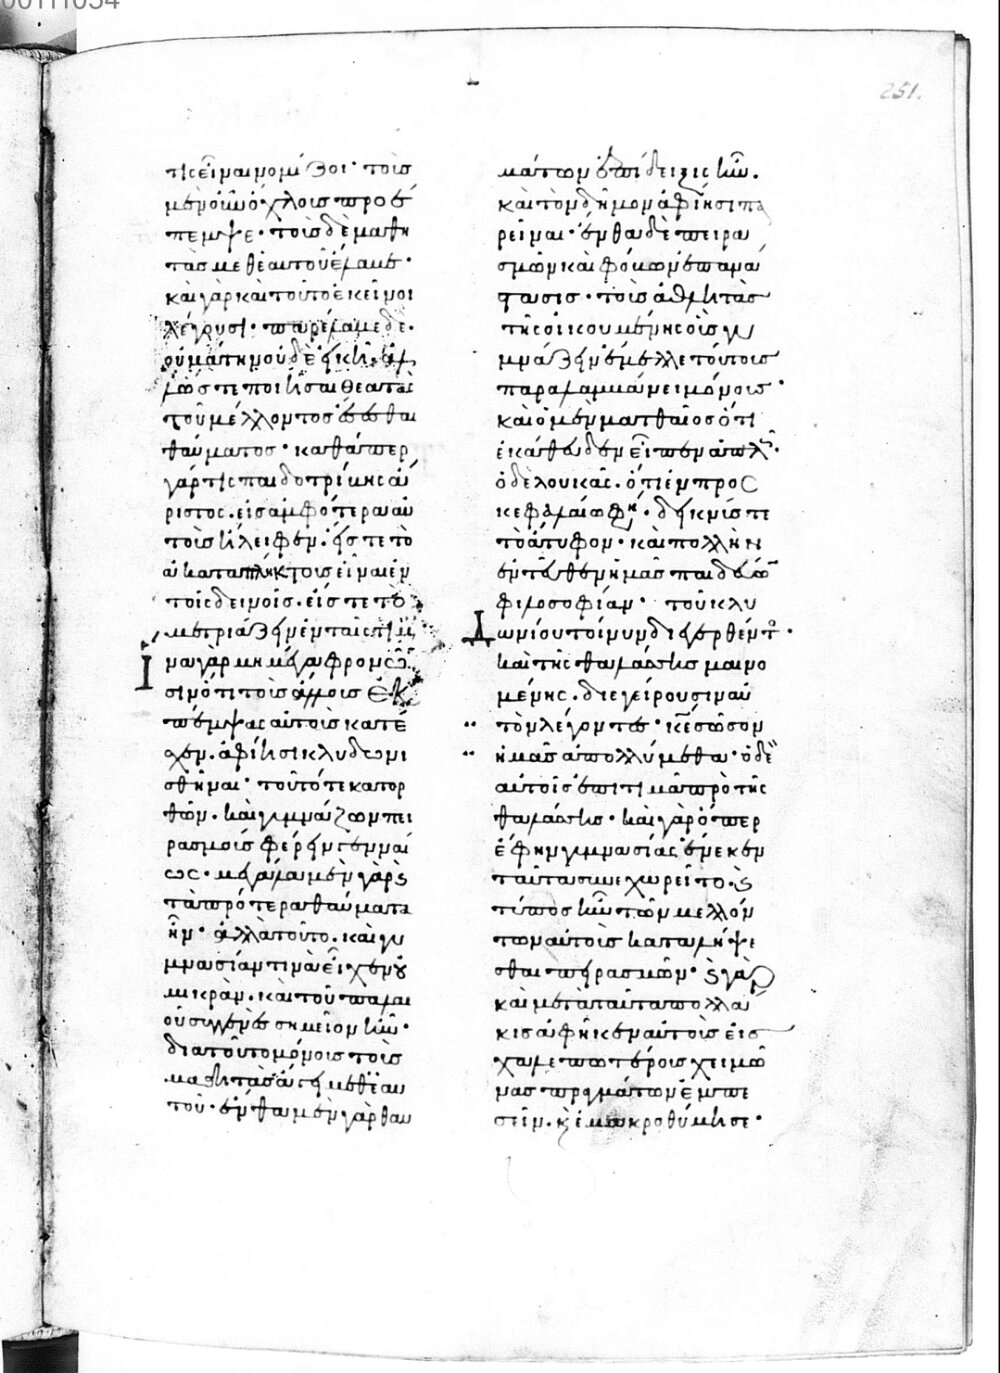 00111054
251.
τις εἶναι νομίζοι· τοῖς
μὲν οὖν ὄχλοις προέ
πεμψε· τοὺς δὲ μαθη
τὰς μεθ' ἑαυτοῦ ἔλαβε·
καὶ γὰρ καὶ τοῦτο ἐκεῖνοι
λέγουσι· παρέλαβε δὲ·
οὐ μάτην οὐδὲ εἰκῆ· ἀλ
λ' ὥστε ποιῆσαι θεατὰς
τοῦ μέλλοντος ἔσεσθαι
θαύματος· καθάπερ
γάρ τις παιδοτρίβης ἄ
ριστος· εἰς ἀμφότερα αὐ
τοὺς ἤλειφεν· εἴς τε τὸ
ἀκαταπλήκτους εἶναι ἐν
τοῖς δεινοῖς· εἴς τε τὸ
μετριάζειν ἐν ταῖς τιμαῖς
ἵνα γὰρ μὴ μέγα φρονῶ
σιν ὅτι τοὺς ἄλλους ἐκ
πέμψας αὐτοὺς κατέ
σχεν· ἀφίησι κλυδωνι
σθῆναι· τοῦτό τε κατορ
θῶν· καὶ γυμνάζων πει
ρασμοὺς φέρειν γενναί
ως· μεγάλα μὲν γὰρ καὶ
τὰ πρότερα θαύματα
ἦν· ἀλλὰ τοῦτο· καὶ γυ
μνασίαν τινὰ εἶχεν οὐ
μικράν· καὶ τοῦ παλαι
οῦ συγγενὲς σημεῖον ἦν·
διατοῦτο μόνους τοὺς
μαθητὰς ἄγει μεθ' ἑαυ
τοῦ· ἔνθα μὲν γὰρ θαυ
μάτων ἐπίδειξις ἦν·
καὶ τὸν δῆμον ἀφίησι πα
ρεῖναι· ἔνθα δὲ πειρα
σμῶν καὶ φόβων ἐπανά
στασις· τοὺς ἀθλητὰς
τῆς οἰκουμένης οὓς γυ
μνάζειν ἔμελλε τούτους
παραλαμβάνει μόνους·
καὶ ὁ μὲν ματθαῖος ὅτι
ἐκάθευδεν εἶπεν ἁπλῶς·
ὁ δὲ λουκᾶς· ὅτι ἐν προσ
κεφαλαίω φη· δεικνύς τε
τὸ ἄτυφον· καὶ πολλὴν
ἐντεῦθεν ἡμᾶς παιδεύων
φιλοσοφίαν· τοῦ κλυ
δωνίου τοίνυν διεγερθέντος·
καὶ τῆς θαλάσσης μαινο
μένης· διεγείρουσιν αὐ
τὸν λέγοντες· κε σῶσον
ἡμᾶς ἀπολλύμεθα· ὁ δὲ
αὐτοῖς ἐπιτιμᾶ πρὸ τῆς
θαλάσσης· καὶ γὰρ ὅπερ
ἔφην γυμνασίας ἕνεκεν
ταῦτα συνεχωρεῖτο· καὶ
τύπος ἦν τῶν μελλόν
των αὐτοὺς καταλήψε
σθαι πειρασμῶν· καὶ γὰρ
καὶ μετὰ ταῦτα πολλά
κις ἀφῆκεν αὐτοὺς εἰς
χαλεπωτέρους χειμῶ
νας πραγμάτων ἐμπε
σεῖν· καὶ ἐμακροθύμησε·